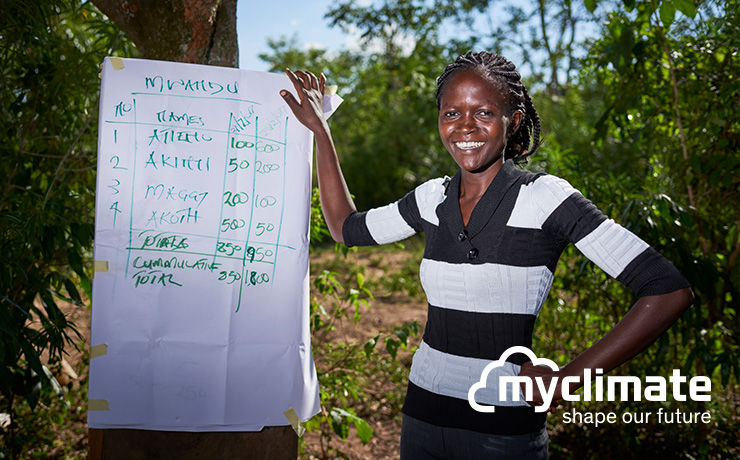 MWANDU
NO NAMES
1 ATIENO 100 600
2 AKINYI 50 200
3 MAGGY 200 100
4 AKOTH 500 50
TOTALS 850 950
CUMMULATIVE TOTAL 850 1,800
myclimate
shape our future